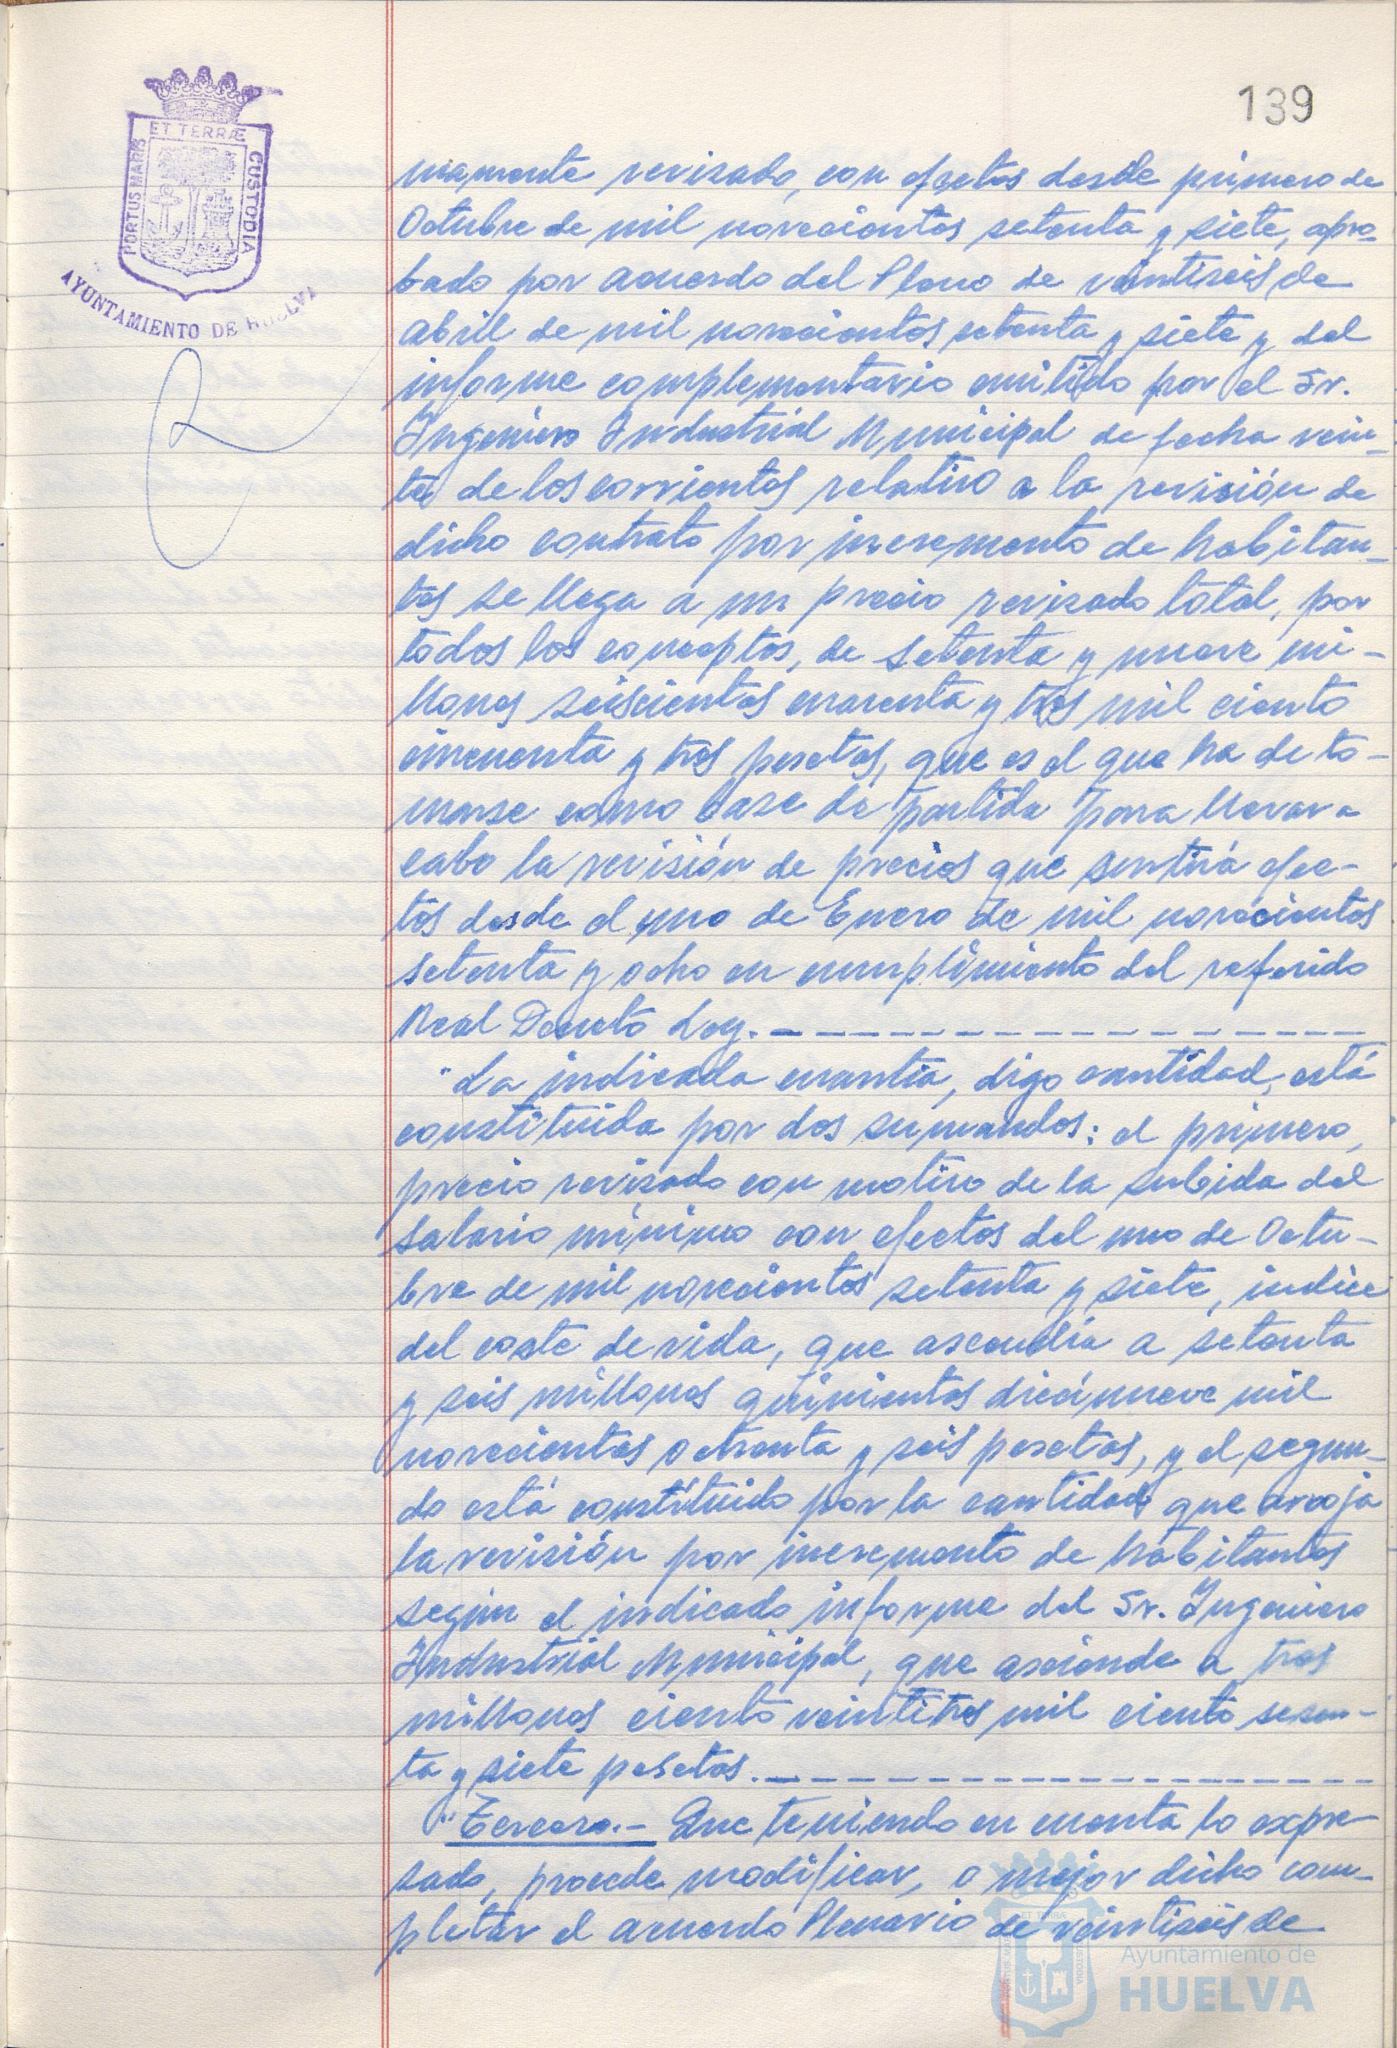 139
ET TERRÆ
PORTUS MARIS
CUSTODIA
AYUNTAMIENTO DE HUELVA
mamente revisado, con efectos desde primero de
Octubre de mil novecientos setenta y siete, apro-
bado por acuerdo del Pleno de veintiseis de
abril de mil novecientos setenta y siete y del
informe complementario emitido por el Sr.
Ingeniero Industrial Municipal de fecha vein-
te de los corrientes relativo a la revisión de
dicho contrato por incremento de habitan-
tes se llega a un precio revisado total, por
todos los conceptos, de setenta y nueve mi-
llones seiscientos cuarenta y tres mil ciento
cincuenta y tres pesetas, que es el que ha de to-
marse como base de partida para llevar a
cabo la revisión de precios que surtirá efec-
tos desde el uno de Enero de mil novecientos
setenta y ocho en cumplimiento del referido
Real Decreto Ley.
"La indicada cuantía, digo cantidad, está
constituida por dos sumandos: el primero,
precio revisado con motivo de la subida del
salario mínimo con efectos del uno de Octu-
bre de mil novecientos setenta y siete, indice
del coste de vida, que ascendía a setenta
y seis millones quinientos diecinueve mil
novecientos ochenta y seis pesetas, y el segun-
do está constituido por la cantidad que arroja
la revisión por incremento de habitantes
según el indicado informe del Sr. Ingeniero
Industrial Municipal, que asciende a tres
millones ciento veintitres mil ciento sesen-
ta y siete pesetas.
"Tercero.- Que teniendo en cuenta lo expre-
sado, procede modificar, o mejor dicho com-
pletar el acuerdo Plenario de veintiseis de
Ayuntamiento de
HUELVA